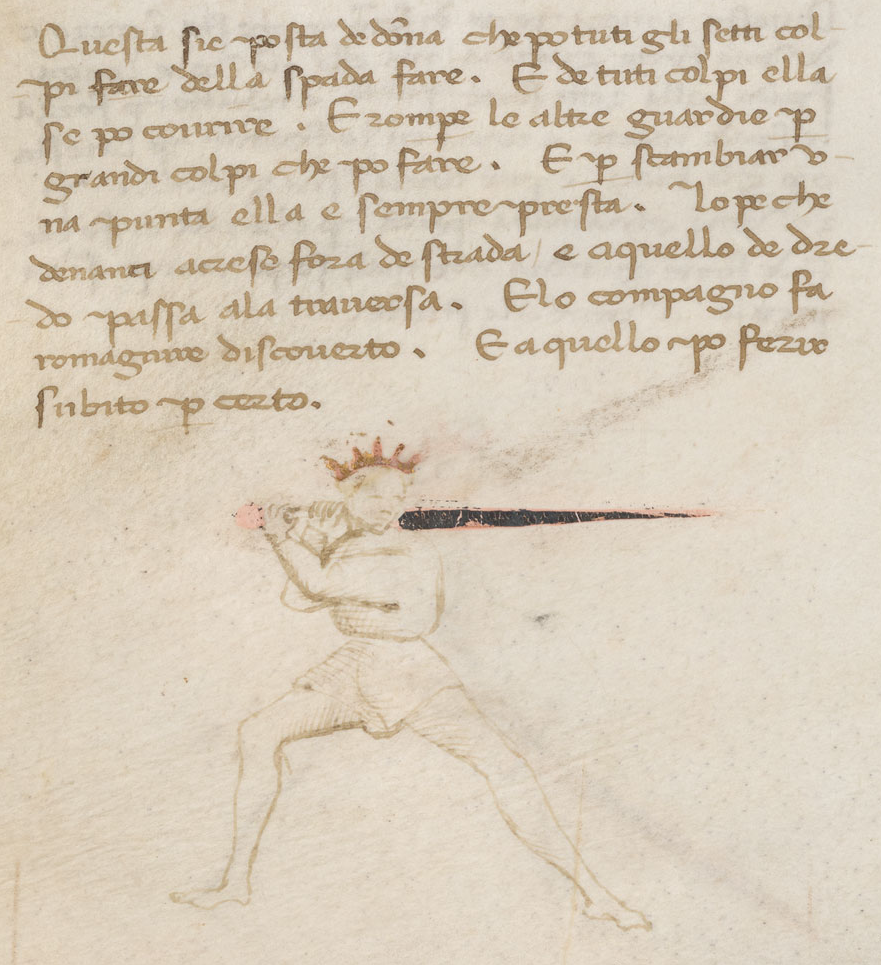 Questa sie posta de dōna che po tuti gli setti col-
pi fare della spada fare. E de tuti colpi ella
se po courire. E rompe le altre guardie p̱
grandi colpi che po fare. E p̱ scambiar v-
na punta ella e sempre presta. Lo pe che
denanci acrese fora de strada / e aquello de dre-
do passa ala trauersa. E lo compagno fa
romagnire discouerto. E aquello po ferir
subito p̱ certo.